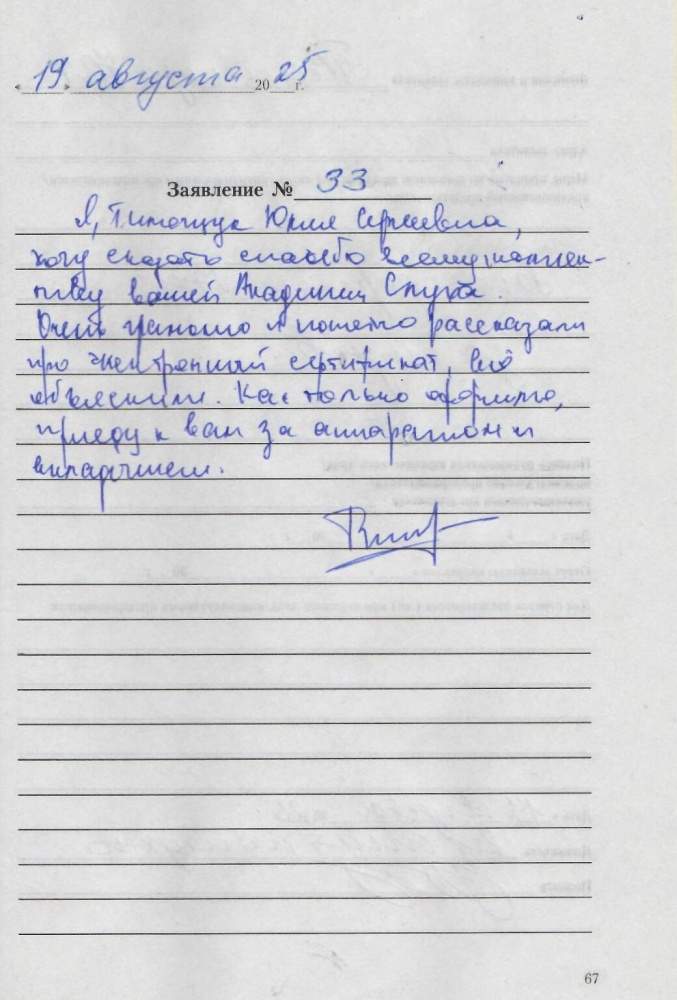 « 19 » августа 20 25 г.
Заявление № 33
Я, Тимощук Юлия Сергеевна,
хочу сказать спасибо всему коллек-
тиву вашей Академии Слуха.
Очень грамотно и понятно рассказали
про электронный сертификат, всё
объяснили. Как только оформлю,
приеду к вам за аппаратом и
вкладышем.
67